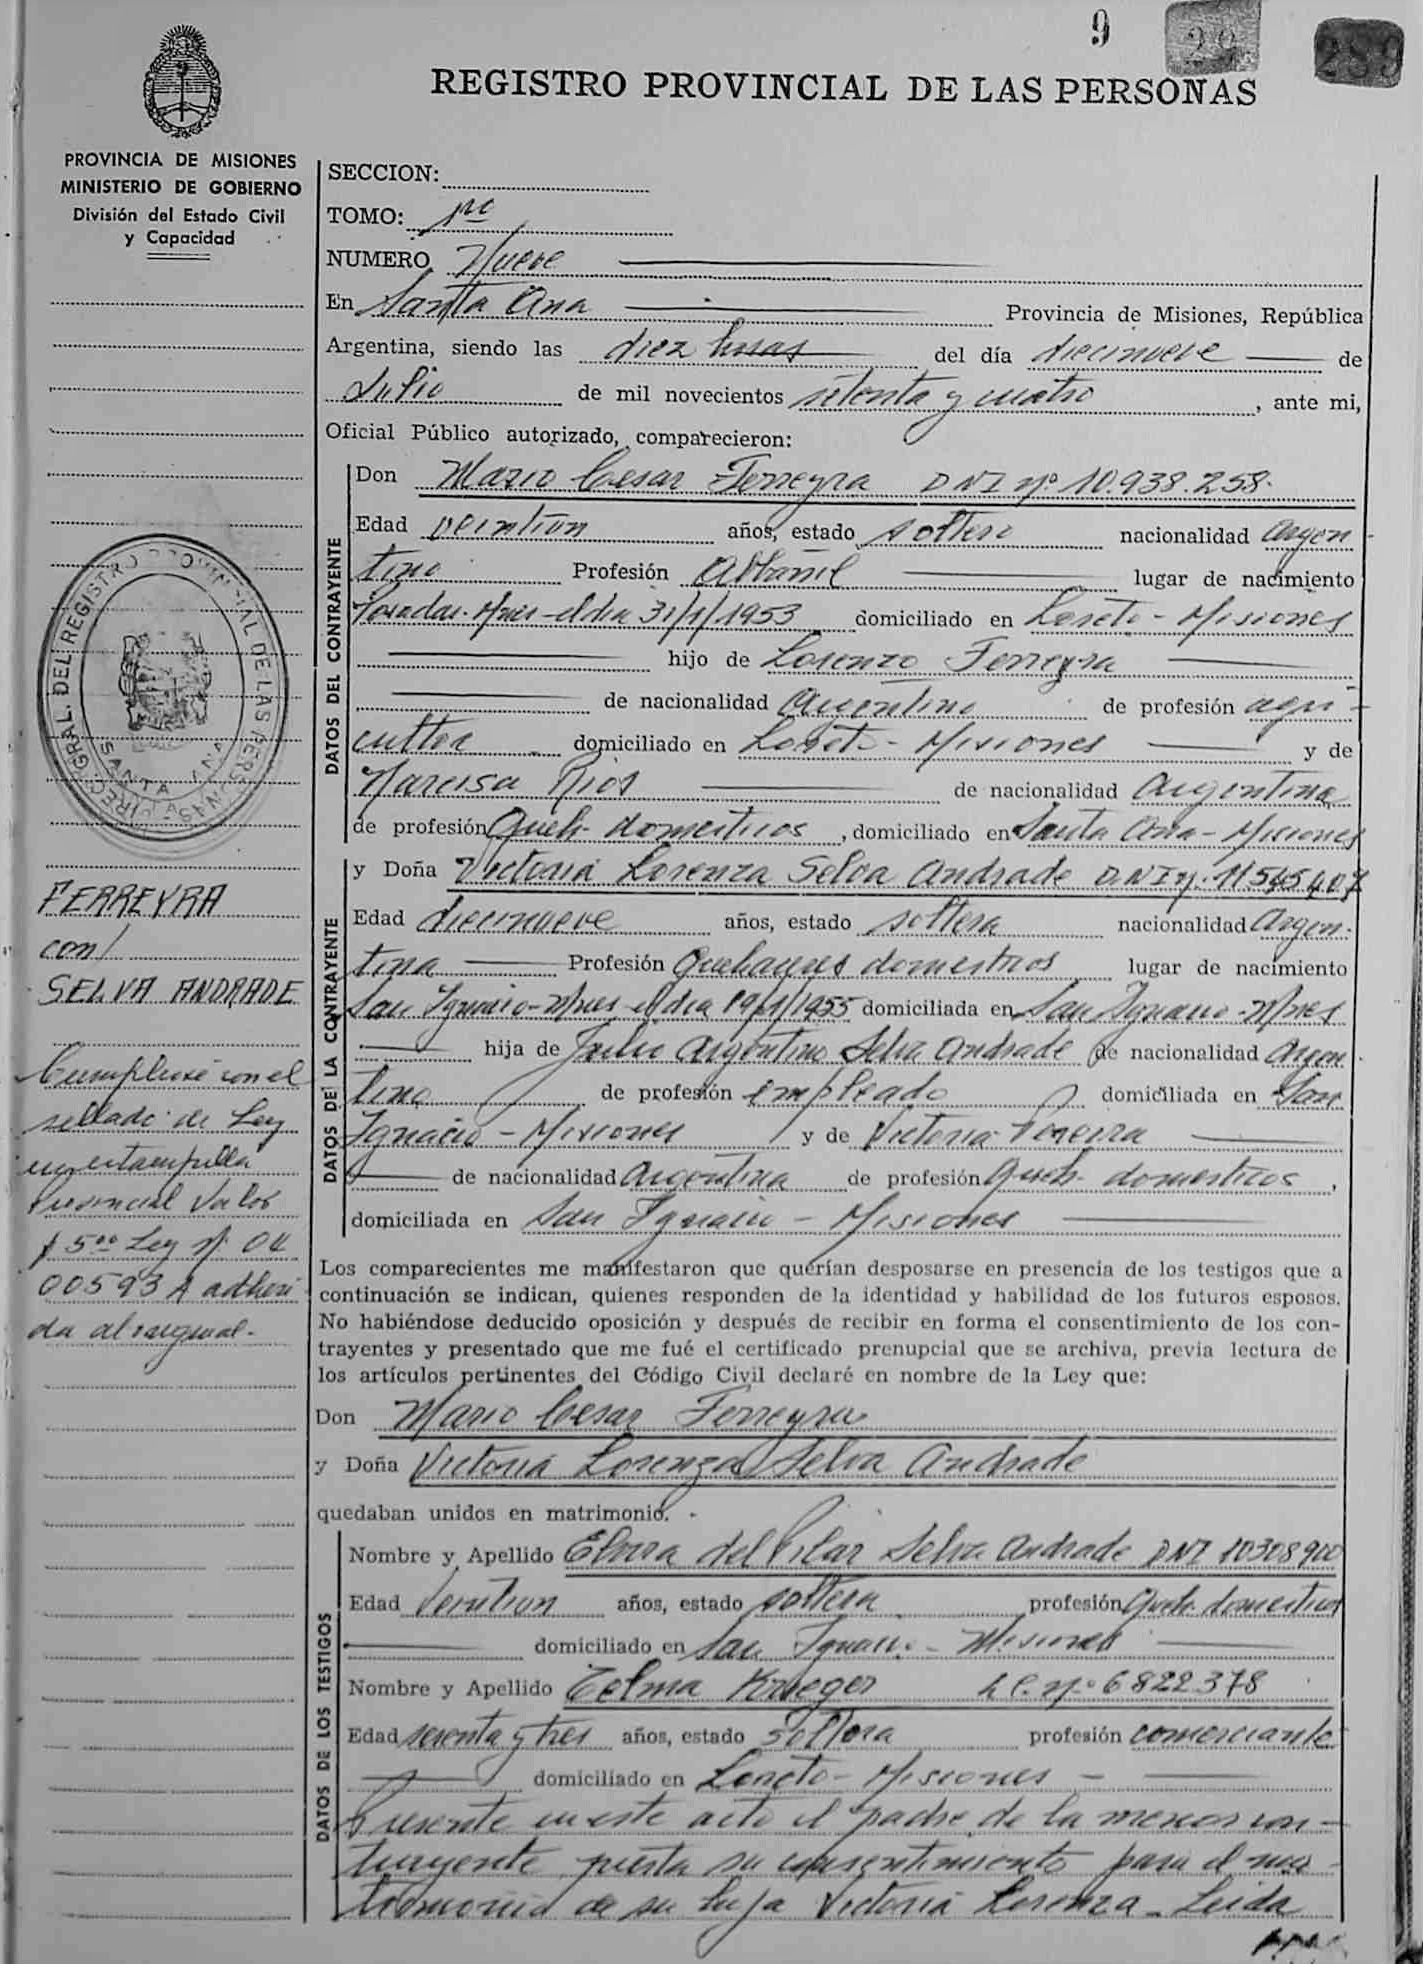 9
29
289
REGISTRO PROVINCIAL DE LAS PERSONAS
PROVINCIA DE MISIONES
MINISTERIO DE GOBIERNO
División del Estado Civil
y Capacidad
SECCION:
TOMO: 1ro
NUMERO Nueve
En Santa Ana Provincia de Misiones, República
Argentina, siendo las diez horas del día diecinueve de
Julio de mil novecientos setenta y cuatro, ante mi,
Oficial Público autorizado, comparecieron:
DATOS DEL CONTRAYENTE
Don Mario Cesar Ferreyra DNI nº 10.938.258.
Edad veintiun años, estado soltero nacionalidad argen
tino Profesión Albañil lugar de nacimiento
Posadas-Mnes-el dia 31/1/1953 domiciliado en Loreto - Misiones
hijo de Lorenzo Ferreyra
de nacionalidad Argentino de profesión agri-
cultor domiciliado en Loreto - Misiones y de
Narcisa Rios de nacionalidad Argentina
de profesión Queh. domesticos, domiciliado en Santa Ana - Misiones
DATOS DE LA CONTRAYENTE
y Doña Victoria Lorenza Selva Andrade D.N.I nº. 11545407
Edad diecinueve años, estado soltera nacionalidad Argen-
tina Profesión Quehaceres domesticos lugar de nacimiento
San Ignacio-Mnes-el dia 19/1/1955 domiciliada en San Ignacio-Mnes
hija de Julio Argentino Selva Andrade de nacionalidad Argen-
tino de profesión empleado domiciliada en San
Ignacio - Misiones y de Victoria Pereira
de nacionalidad Argentina de profesión Queh. domesticos,
domiciliada en San Ignacio - Misiones
Los comparecientes me manifestaron que querían desposarse en presencia de los testigos que a
continuación se indican, quienes responden de la identidad y habilidad de los futuros esposos.
No habiéndose deducido oposición y después de recibir en forma el consentimiento de los con-
trayentes y presentado que me fué el certificado prenupcial que se archiva, previa lectura de
los artículos pertinentes del Código Civil declaré en nombre de la Ley que:
Don Mario Cesar Ferreyra
y Doña Victoria Lorenza Selva Andrade
quedaban unidos en matrimonio.
DATOS DE LOS TESTIGOS
Nombre y Apellido Elvira del Pilar Selva Andrade DNI 10308900
Edad Veintiun años, estado soltera profesión Queh. domesticos
domiciliado en San Ignacio - Misiones
Nombre y Apellido Telma Krueger L.C. nº 6822378
Edad sesenta y tres años, estado soltera profesión comerciante
domiciliado en Loreto - Misiones
Presente en este acto el padre de la menor con-
trayente presta su consentimiento para el ma-
trimonio de su hija Victoria Lorenza - Leida
DIREC. GRAL. DEL REGISTRO PROVINCIAL DE LAS PERSONAS
SANTA ANA
FERREYRA
con/
SELVA ANDRADE
Cumplese con el
sellado de Ley
en estampilla
Provincial Valor
$ 5,00 Ley nº 04
00593 A adheri
da al original.-